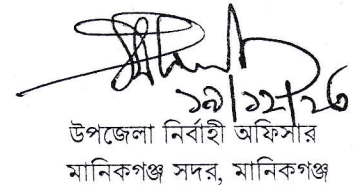 ১৯/১২/২৩
উপজেলা নির্বাহী অফিসার
মানিকগঞ্জ সদর, মানিকগঞ্জ